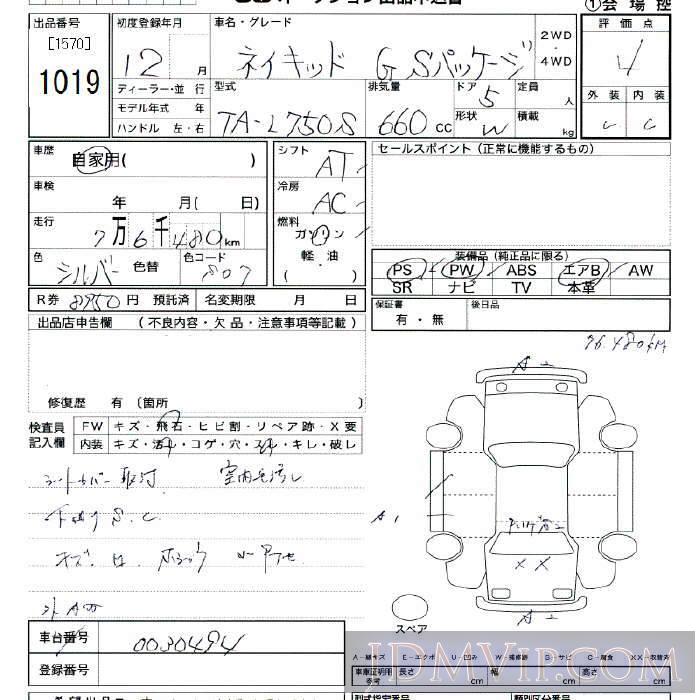 出品番号
[1570]
1019
初度登録年月
12 月
ディーラー・並 行
モデル年式 年
ハンドル 左・右
車名・グレード
ネイキッド G Sパッケージ
2WD
4WD
型式
TA-L750S
排気量
660 cc
ドア
5
形状
W
定員
人
積載
kg
①会場控
評価点
4
外装 内装
C C
車歴
自家用( )
車検
年 月( 日)
走行
7万6千480km
色
シルバー 色替
色コード
S07
シフト
AT
冷房
AC
燃料
ガソリン
(軽・油)
セールスポイント (正常に機能するもの)
装備品 (純正品に限る)
PS PW ABS エアB AW
SR ナビ TV 本革
R券 8950円 預託済 名変期限 月 日
保証書
有・無
後日品
出品店申告欄 (不良内容・欠品・注意事項等記載)
76.480km
修復歴 有 (箇所 )
検査員
記入欄
FW キズ・飛石・ヒビ割・リペア跡・X要
内装 キズ・汚れ・コゲ・穴・スレ・キレ・破レ
シートカバー取付 室内毛汚レ
下廻りS.C
A2
A1
XX
A2
スペア
車台番号
0030494
登録番号
A-線キズ E-エクボ U-凹み W-補修跡 S-サビ C-腐食 XX-交換済
車庫証明用
参考
長さ cm
幅 cm
高さ cm
型式指定番号 類別区分番号
JDMVIP.COM